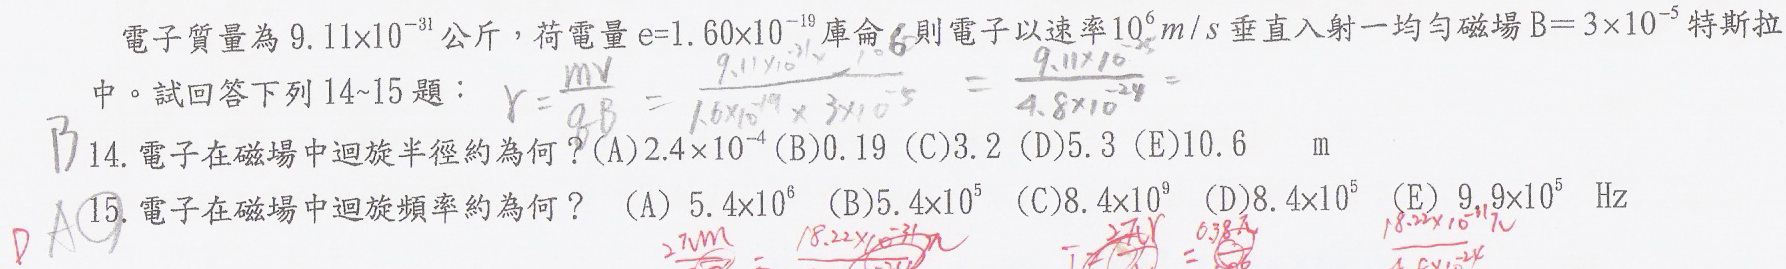 電子質量為 9.11×10⁻³¹ 公斤，荷電量 e=1.60×10⁻¹⁹ 庫侖，則電子以速率10⁶ m/s 垂直入射一均勻磁場 B＝3×10⁻⁵ 特斯拉
中。試回答下列 14~15 題： r = mv/qB = 9.11×10⁻³¹× 10⁶/1.6×10⁻¹⁹ × 3×10⁻⁵ = 9.11×10⁻²⁵/4.8×10⁻²⁴ =
B 14. 電子在磁場中迴旋半徑約為何？(A)2.4×10⁻⁴ (B)0.19 (C)3.2 (D)5.3 (E)10.6 m
D A 15. 電子在磁場中迴旋頻率約為何？ (A) 5.4×10⁶ (B)5.4×10⁵ (C)8.4×10⁹ (D)8.4×10⁵ (E) 9.9×10⁵ Hz
2πm = 18.22×10⁻³¹π T= 2πr = 0.38π 18.22×10⁻³¹π